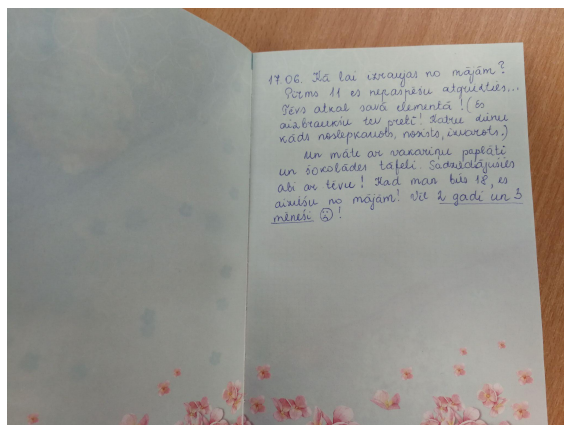 17.06. Kā lai izraujas no mājām?
Pirms 11 es nepaspēšu atgriezties...
Tēvs atkal savā elementā! (Es
aizbraukšu tev pretī! Katru dienu
kāds noslepkavots, nosists, izvarots.)
Un māte ar vakariņu paplāti
un šokolādes tāfeli. Sadziedājušies
abi ar tēvu! Kad man būs 18, es
aiziešu no mājām! Vēl 2 gadi un 3
mēneši ☹!